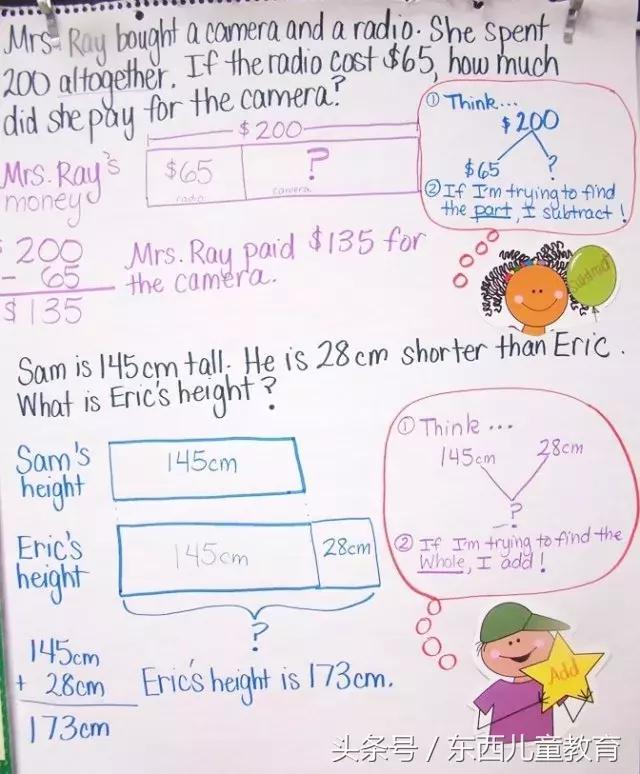 Mrs. Ray bought a camera and a radio. She spent
200 altogether. If the radio cost $65, how much
did she pay for the camera?
$200
Mrs. Ray's
money
$65
radio
?
camera
① Think...
$200
$65
?
② If I'm trying to find
the part, I subtract!
200
- 65
$135
Mrs. Ray paid $135 for
the camera.
Subtract
Sam is 145cm tall. He is 28cm shorter than Eric.
What is Eric's height?
Sam's
height
145cm
Eric's
height
145cm
28cm
?
① Think...
145cm
28cm
?
② If I'm trying to find the
Whole, I add!
145cm
+ 28cm
173cm
Eric's height is 173cm.
Add
头条号 / 东西儿童教育